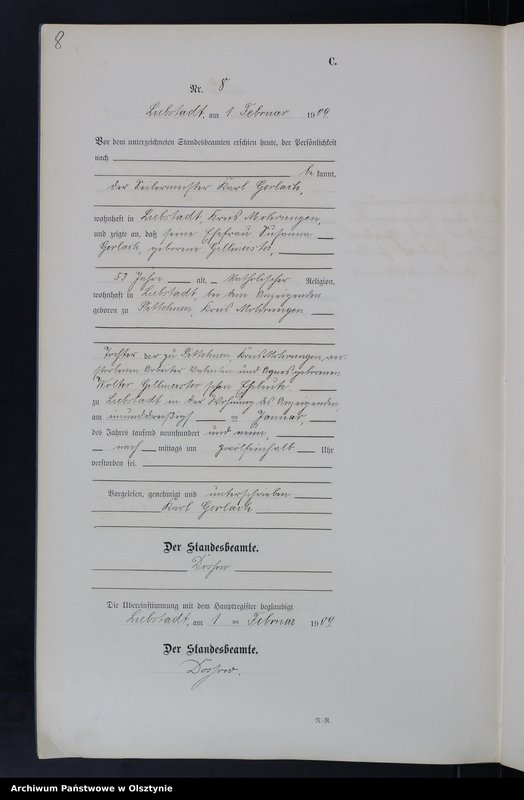 8
C.
Nr. 8
Liebstadt, am 1 Februar 1909.
Vor dem unterzeichneten Standesbeamten erschien heute, der Persönlichkeit
nach
be kannt,
der Seilermeister Karl Gerlach,
wohnhaft in Liebstadt, Kreis Mohrungen,
und zeigte an, daß seine Ehefrau Susanna
Gerlach, geborene
53 Jahre alt, katholischer Religion,
wohnhaft in Liebstadt, bei dem Anzeigenden
geboren zu Kreis Mohrungen
Tochter der zu Kreis Mohrungen, ver-
storbenen Arbeiter Valentin und Agnes geborenen
Wolter Eheleute
zu Liebstadt in der Wohnung des Anzeigenden,
am einunddreißigsten Januar,
des Jahres tausend neunhundert und neun,
nach mittags um zwölfeinhalb Uhr
verstorben sei.
Vorgelesen, genehmigt und unterschrieben
Karl Gerlach
Der Standesbeamte.
Die Übereinstimmung mit dem Hauptregister beglaubigt
Liebstadt, am 1 ten Februar 1909.
Der Standesbeamte.
Archiwum Państwowe w Olsztynie